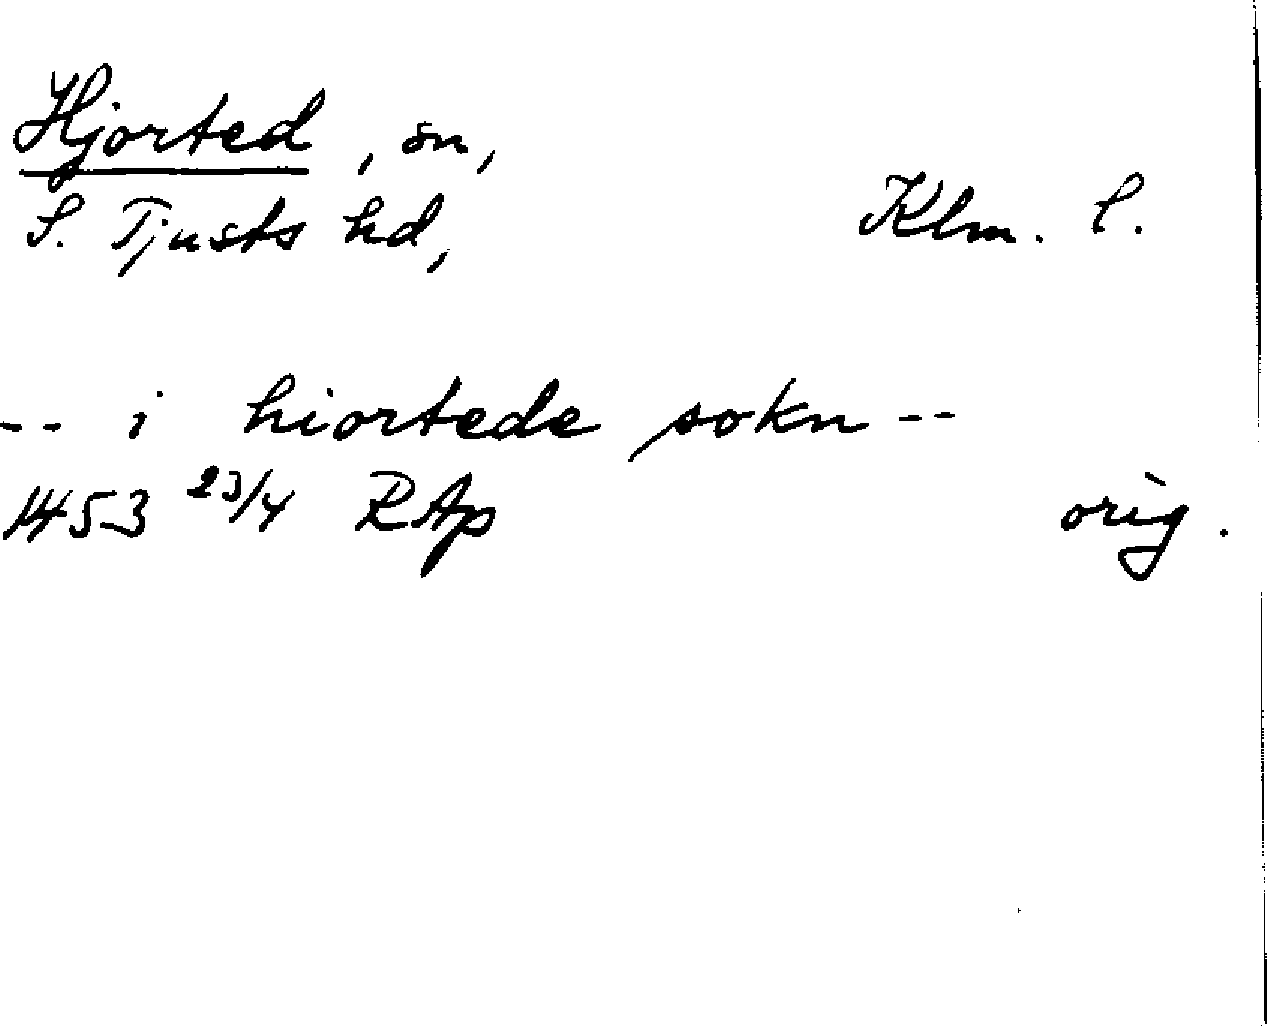 Hjorted, sn,
S. Tjusts hd, Klm. l.
-- i hiortede sokn --
1453 23/4 RAp orig.